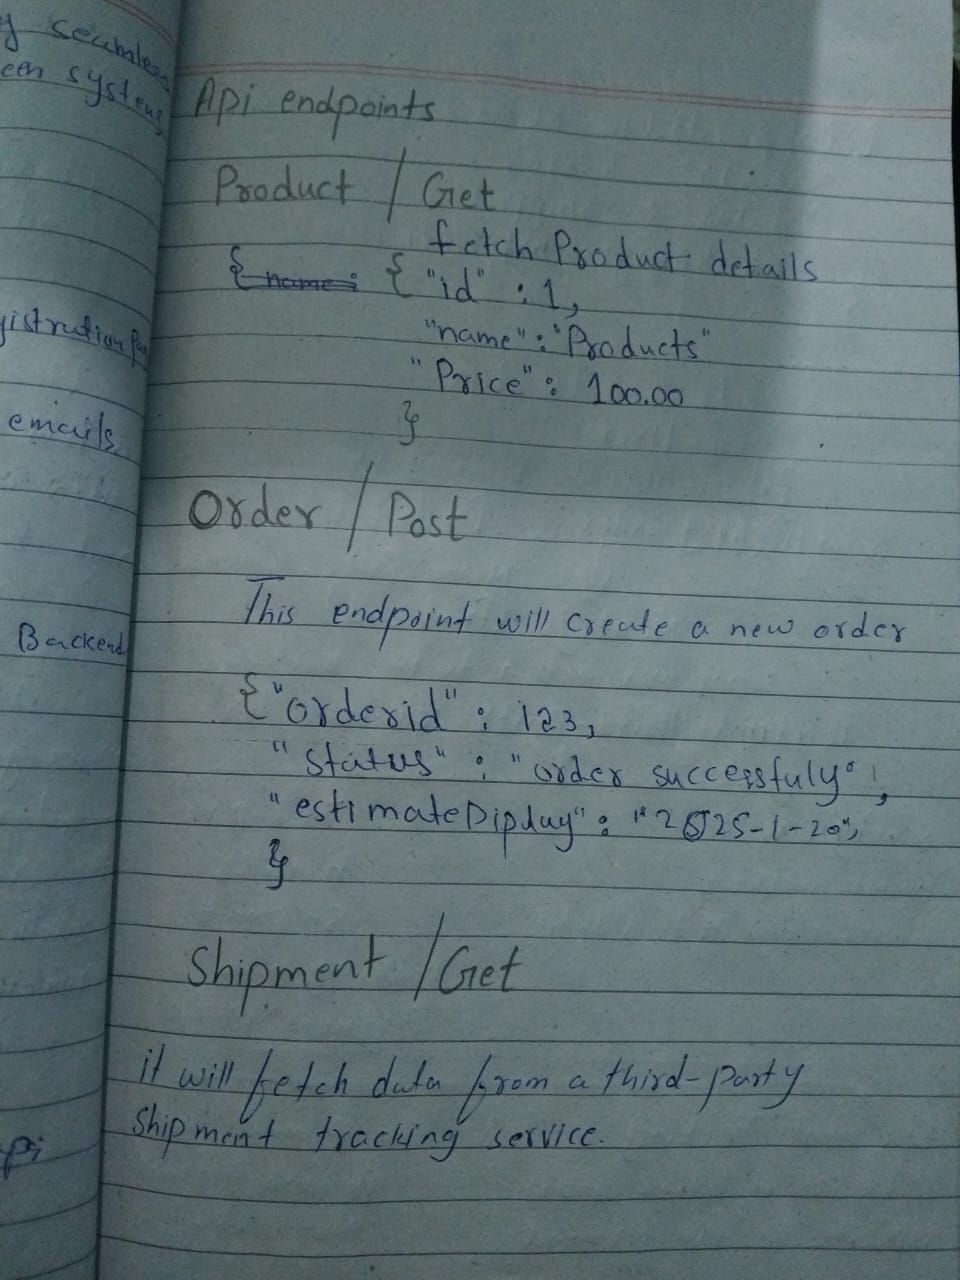 seamless
een systems
gistration
emails
Backend
pi
Api endpoints
Product / Get
fetch Product details
{ name: { "id" : 1,
"name" : "Products"
"Price" : 100.00
}
Order / Post
This endpoint will create a new order
{ "orderid" : 123,
"status" : "order successfuly",
"estimate" : "2025-1-20",
}
Shipment / Get
it will fetch data from a third-party
Shipment tracking service.